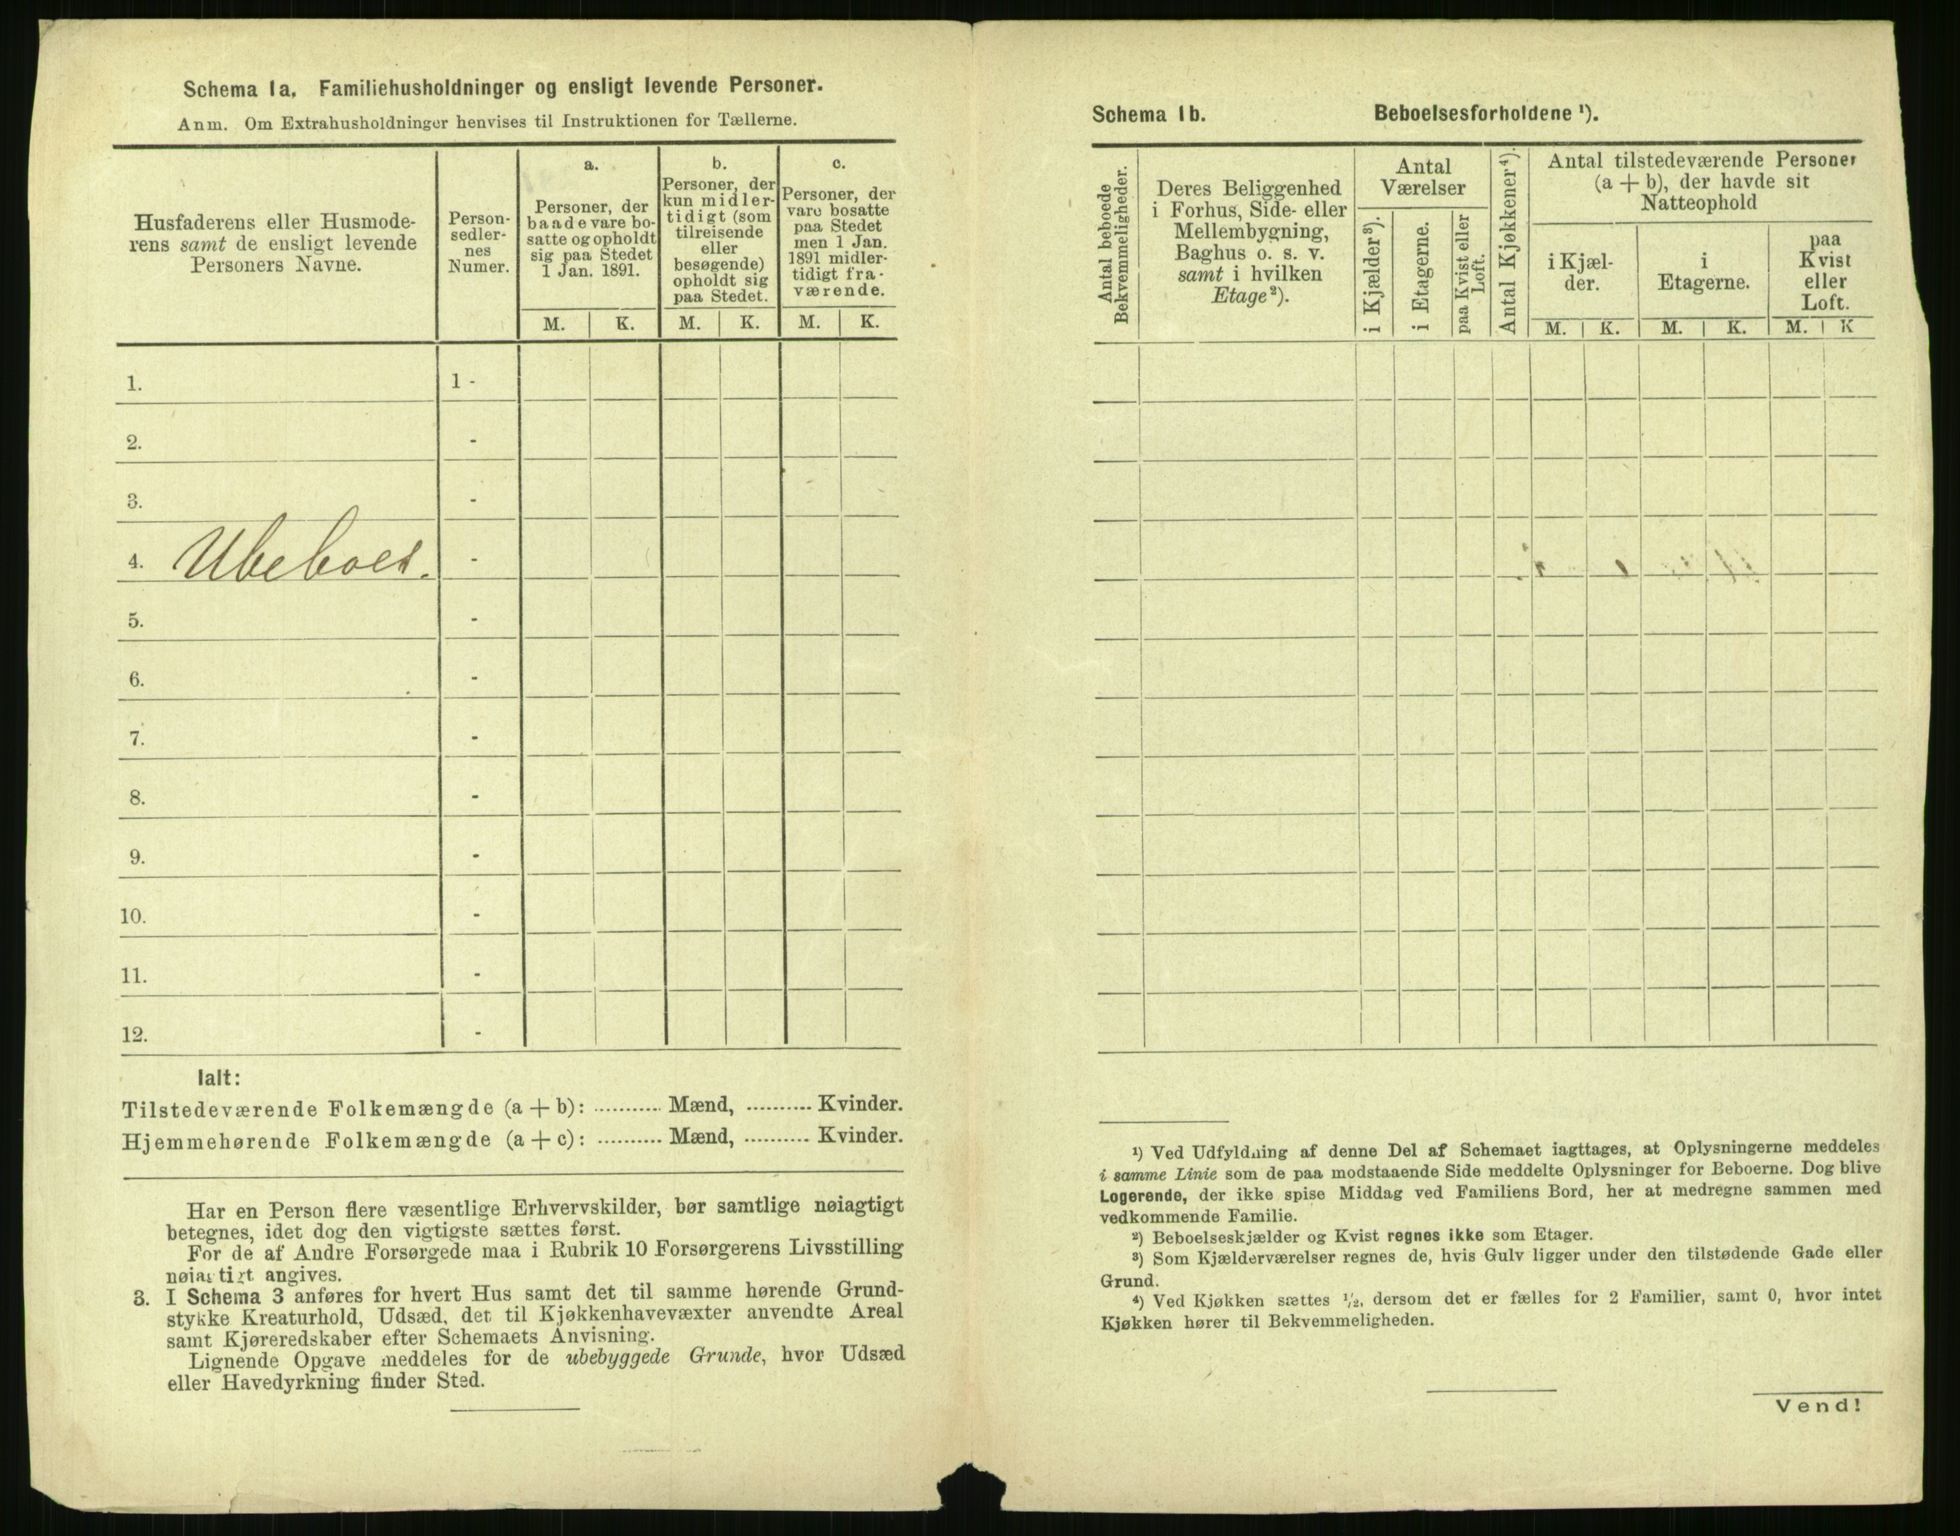 Schema 1a. Familiehusholdninger og ensligt levende Personer.
Anm. Om Extrahusholdninger henvises til Instruktionen for Tællerne.
Husfaderens eller Husmode-
rens samt de ensligt levende
Personers Navne.
Person-
sedler-
nes
Numer.
a.
Personer, der
baade vare bo-
satte og opholdt
sig paa Stedet
1 Jan. 1891.
b.
Personer, der
kun midler-
tidigt (som
tilreisende
eller
besøgende)
opholdt sig
paa Stedet.
c.
Personer, der
vare bosatte
paa Stedet
men 1 Jan.
1891 midler-
tidigt fra-
værende.
M. K. M. K. M. K.
1. 1 -
2. -
3. -
4. Ubeboet. -
5. -
6. -
7. -
8. -
9. -
10. -
11. -
12. -
Ialt:
Tilstedeværende Folkemængde (a + b): ........... Mænd, ........... Kvinder.
Hjemmehørende Folkemængde (a + c): ........... Mænd, ........... Kvinder.
Har en Person flere væsentlige Erhvervskilder, bør samtlige nøiagtigt
betegnes, idet dog den vigtigste sættes først.
For de af Andre Forsørgede maa i Rubrik 10 Forsørgerens Livsstilling
nøiagtigt angives.
3. I Schema 3 anføres for hvert Hus samt det til samme hørende Grund-
stykke Kreaturhold, Udsæd, det til Kjøkkenhavevæxter anvendte Areal
samt Kjøreredskaber efter Schemaets Anvisning.
Lignende Opgave meddeles for de ubebyggede Grunde, hvor Udsæd
eller Havedyrkning finder Sted.
Schema 1b. Beboelsesforholdene ¹).
Antal beboede
Bekvemmeligheder.
Deres Beliggenhed
i Forhus, Side- eller
Mellembygning,
Baghus o. s. v.
samt i hvilken
Etage²).
Antal
Værelser
i Kjælder³).
i Etagerne.
paa Kvist eller
Loft.
Antal Kjøkkener⁴).
Antal tilstedeværende Personer
(a + b), der havde sit
Natteophold
i Kjæl-
der.
i
Etagerne.
paa
Kvist
eller
Loft.
M. K. M. K. M. K
¹) Ved Udfyldning af denne Del af Schemaet iagttages, at Oplysningerne meddeles
i samme Linie som de paa modstaaende Side meddelte Oplysninger for Beboerne. Dog blive
Logerende, der ikke spise Middag ved Familiens Bord, her at medregne sammen med
vedkommende Familie.
²) Beboelseskjælder og Kvist regnes ikke som Etager.
³) Som Kjælderværelser regnes de, hvis Gulv ligger under den tilstødende Gade eller
Grund.
⁴) Ved Kjøkken sættes ½, dersom det er fælles for 2 Familier, samt 0, hvor intet
Kjøkken hører til Bekvemmeligheden.
Vend!